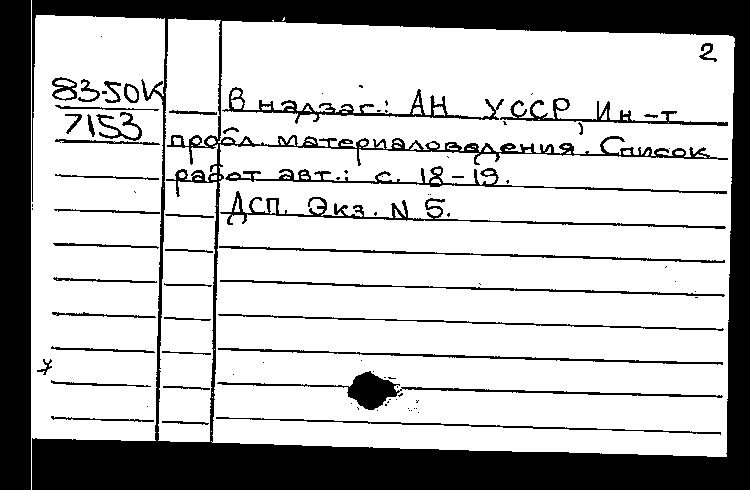 2
83-50К
7153
В надзаг.: АН УССР, Ин-т
пробл. материаловедения. Список
работ авт.: с. 18-19.
ДСП. Экз. N 5.